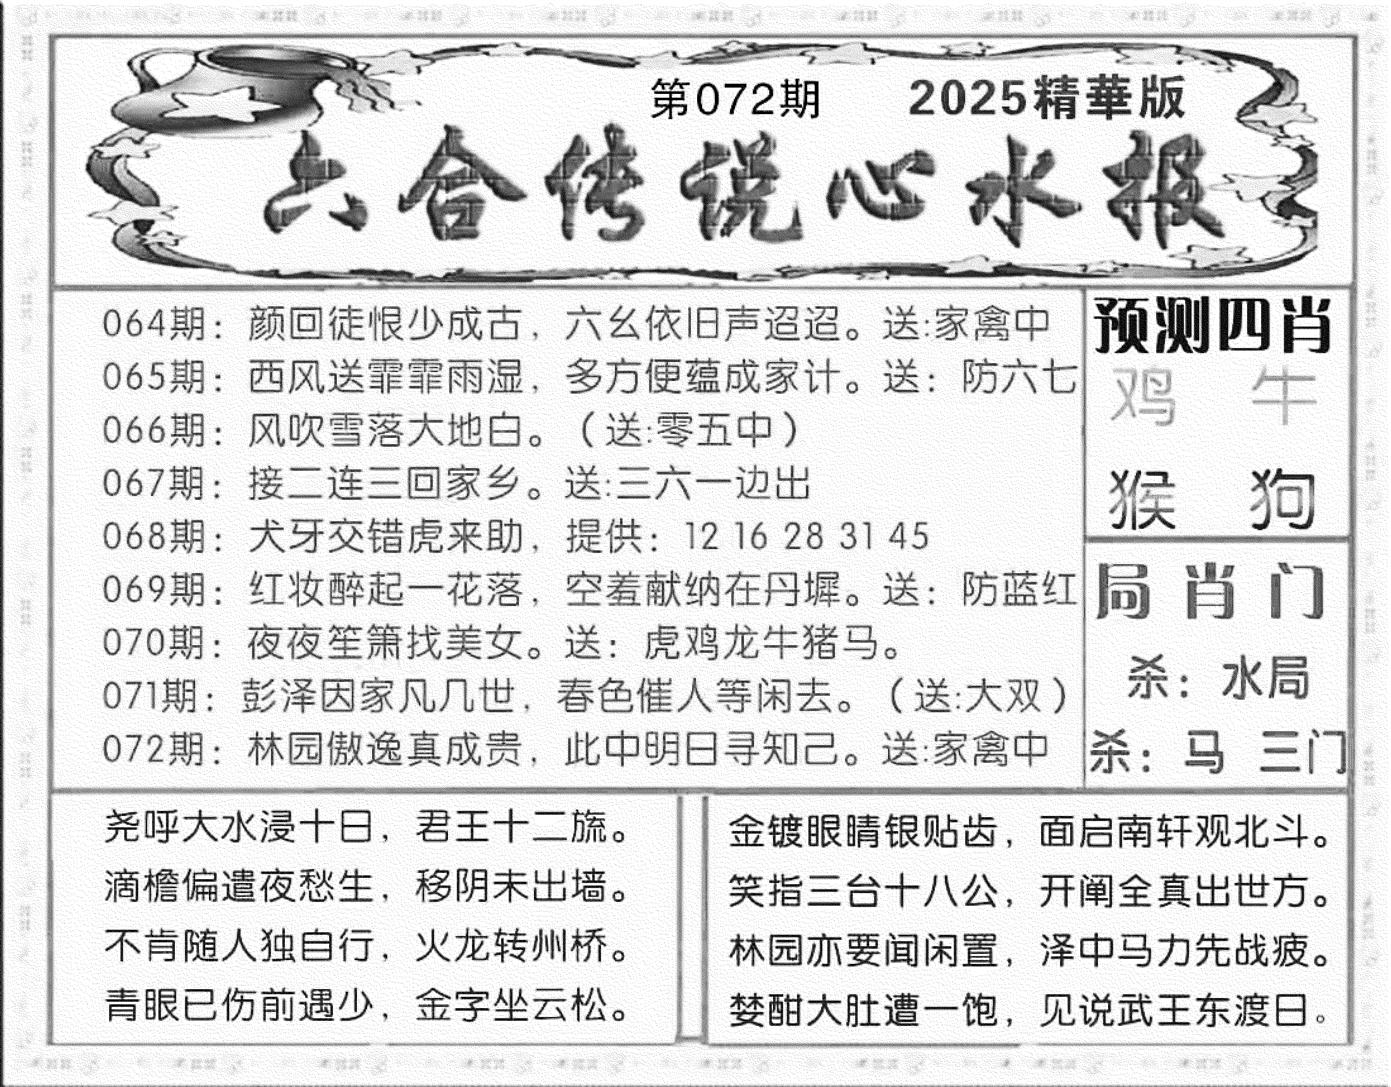 第072期 2025精華版
六合传说心水报
064期：颜回徒恨少成古，六幺依旧声迢迢。送:家禽中
065期：西风送霏霏雨湿，多方便蕴成家计。送：防六七
066期：风吹雪落大地白。（送:零五中）
067期：接二连三回家乡。送:三六一边出
068期：犬牙交错虎来助，提供：12 16 28 31 45
069期：红妆醉起一花落，空羞献纳在丹墀。送：防蓝红
070期：夜夜笙箫找美女。送：虎鸡龙牛猪马。
071期：彭泽因家凡几世，春色催人等闲去。（送:大双）
072期：林园傲逸真成贵，此中明日寻知己。送:家禽中
预测四肖
鸡 牛
猴 狗
局肖门
杀：水局
杀：马 三门
尧呼大水浸十日，君王十二旒。
滴檐偏遣夜愁生，移阴未出墙。
不肯随人独自行，火龙转州桥。
青眼已伤前遇少，金字坐云松。
金镀眼睛银贴齿，面启南轩观北斗。
笑指三台十八公，开阐全真出世方。
林园亦要闻闲置，泽中马力先战疲。
婪酣大肚遭一饱，见说武王东渡日。